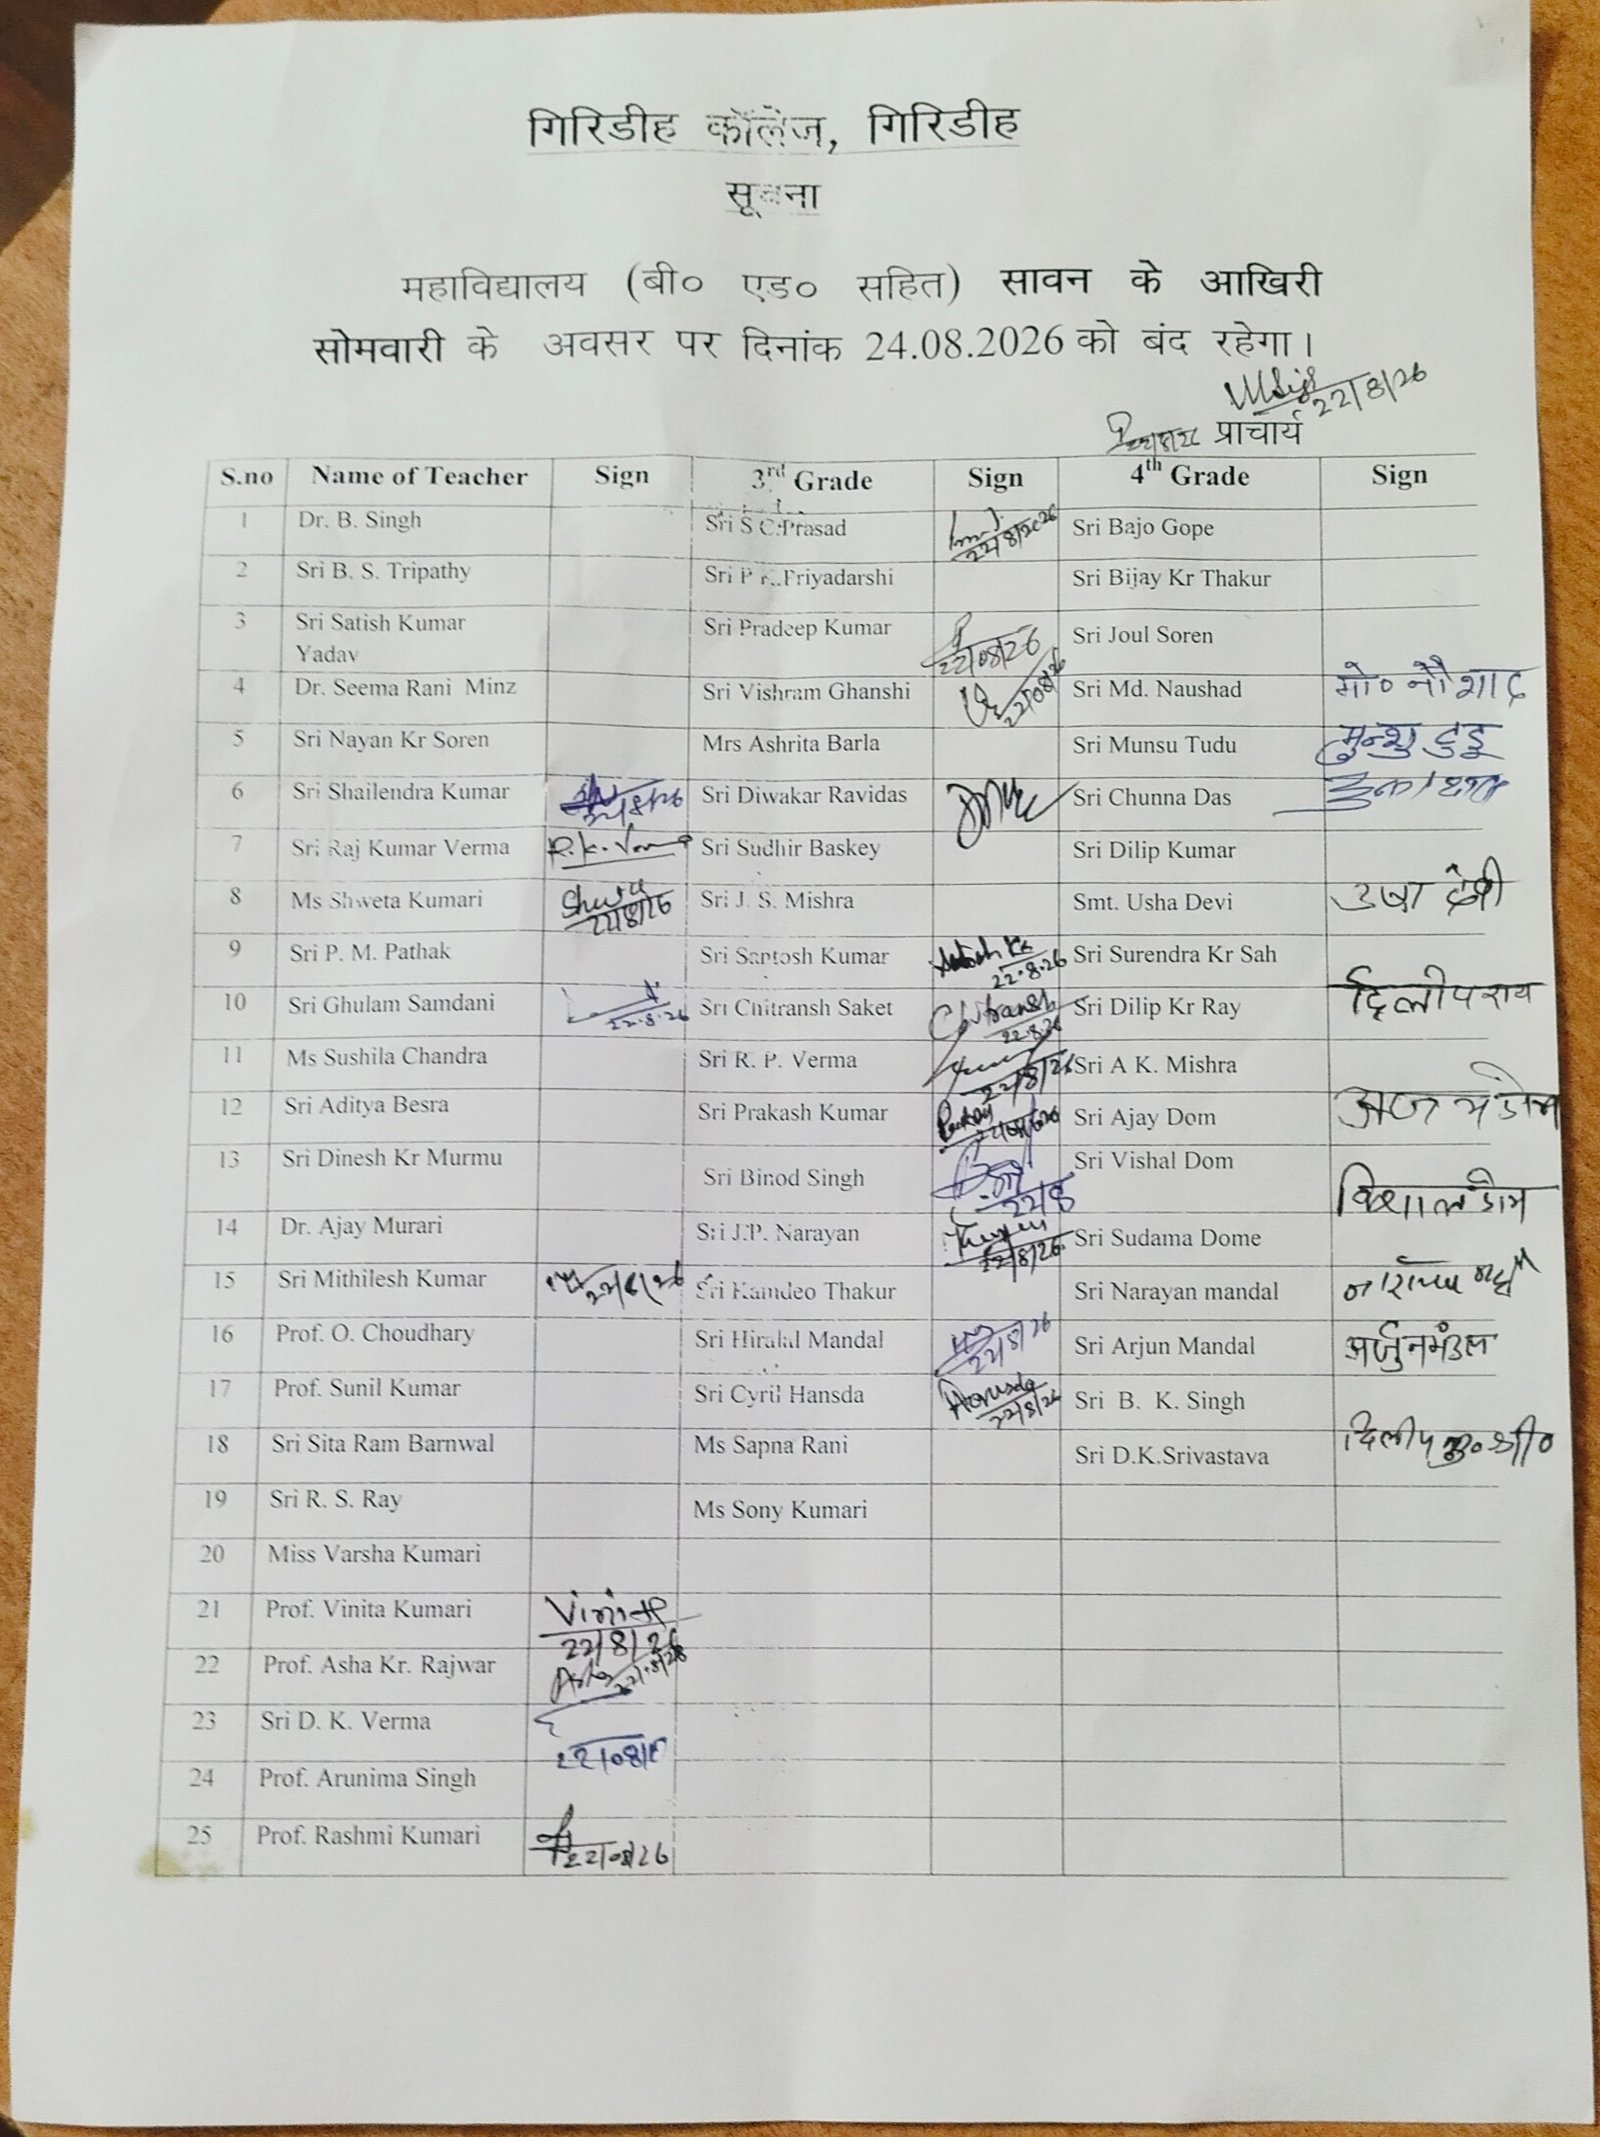 गिरिडीह कॉलेज, गिरिडीह
सूचना
महाविद्यालय (बी० एड० सहित) सावन के आखिरी
सोमवारी के अवसर पर दिनांक 24.08.2026 को बंद रहेगा।
22/8/26
प्राचार्य
S.no Name of Teacher Sign 3rd Grade Sign 4th Grade Sign
1 Dr. B. Singh Sri S C Prasad 22/8/2026 Sri Bajo Gope
2 Sri B. S. Tripathy Sri P K Priyadarshi Sri Bijay Kr Thakur
3 Sri Satish Kumar Yadav Sri Pradeep Kumar 22/08/26 Sri Joul Soren
4 Dr. Seema Rani Minz Sri Vishram Ghanshi 22/08/26 Sri Md. Naushad मो० नौशाद
5 Sri Nayan Kr Soren Mrs Ashrita Barla Sri Munsu Tudu मुन्शु टुडू
6 Sri Shailendra Kumar 22/8/26 Sri Diwakar Ravidas Sri Chunna Das
7 Sri Raj Kumar Verma R.K. Sri Sudhir Baskey Sri Dilip Kumar
8 Ms Shweta Kumari 22/8/26 Sri J. S. Mishra Smt. Usha Devi उषा देवी
9 Sri P. M. Pathak Sri Santosh Kumar 22.8.26 Sri Surendra Kr Sah
10 Sri Ghulam Samdani 22.8.26 Sri Chitransh Saket Chitransh 22.8.26 Sri Dilip Kr Ray दिलीप राय
11 Ms Sushila Chandra Sri R. P. Verma 22/8/26 Sri A K. Mishra
12 Sri Aditya Besra Sri Prakash Kumar Sri Ajay Dom अजय डोम
13 Sri Dinesh Kr Murmu Sri Binod Singh 22/8 Sri Vishal Dom विशाल डोम
14 Dr. Ajay Murari Sri J.P. Narayan 22/8/26 Sri Sudama Dome
15 Sri Mithilesh Kumar 22/8/26 Sri Kamdeo Thakur Sri Narayan mandal
16 Prof. O. Choudhary Sri Hiralal Mandal 22/8/26 Sri Arjun Mandal अर्जुन मंडल
17 Prof. Sunil Kumar Sri Cyril Hansda Hansda 22/8/26 Sri B. K. Singh
18 Sri Sita Ram Barnwal Ms Sapna Rani Sri D.K.Srivastava दिलीप कु० श्री०
19 Sri R. S. Ray Ms Sony Kumari
20 Miss Varsha Kumari
21 Prof. Vinita Kumari Vinita 22/8/26
22 Prof. Asha Kr. Rajwar Asha 22/8/26
23 Sri D. K. Verma
24 Prof. Arunima Singh
25 Prof. Rashmi Kumari 22/08/26